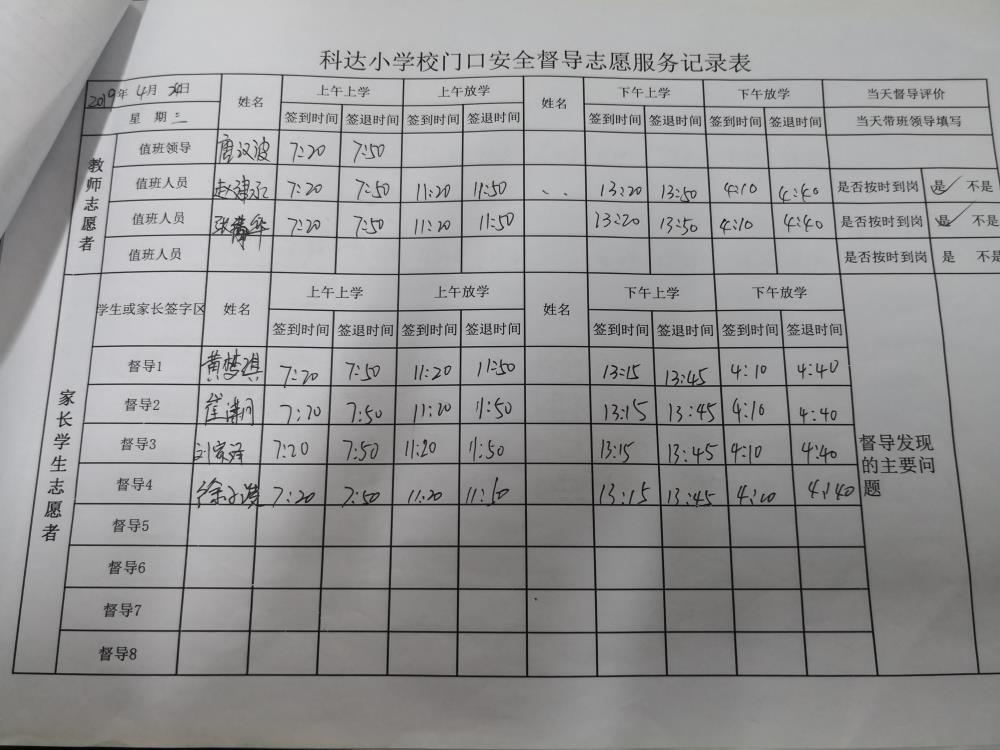 科达小学校门口安全督导志愿服务记录表
2019年 4月 日 姓名 上午上学 上午放学 姓名 下午上学 下午放学 当天督导评价
星 期三 签到时间 签退时间 签到时间 签退时间 签到时间 签退时间 签到时间 签退时间 当天带班领导填写
教师志愿者
值班领导 唐汉波 7:20 7:50
值班人员 赵建 7:20 7:50 11:20 11:50 13:20 13:50 4:10 4:40 是否按时到岗 是 ✓ 不是
值班人员 张 华 7:20 7:50 11:20 11:50 13:20 13:50 4:10 4:40 是否按时到岗 是 ✓ 不是
值班人员 是否按时到岗 是 不是
家长学生志愿者
学生或家长签字区 姓名 上午上学 上午放学 姓名 下午上学 下午放学
签到时间 签退时间 签到时间 签退时间 签到时间 签退时间 签到时间 签退时间
督导1 黄梦琪 7:20 7:50 11:20 11:50 13:15 13:45 4:10 4:40
督导2 崔 7:20 7:50 11:20 11:50 13:15 13:45 4:10 4:40
督导3 刘家 7:20 7:50 11:20 11:50 13:15 13:45 4:10 4:40
督导4 徐子 7:20 7:50 11:20 11:50 13:15 13:45 4:10 4:40
督导5
督导6
督导7
督导8
督导发现
的主要问
题